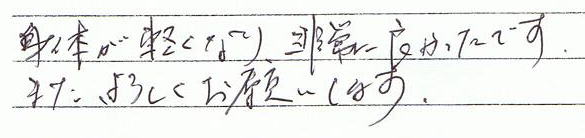 身体が軽くなり 非常に良かったです.
また よろしくお願いします.